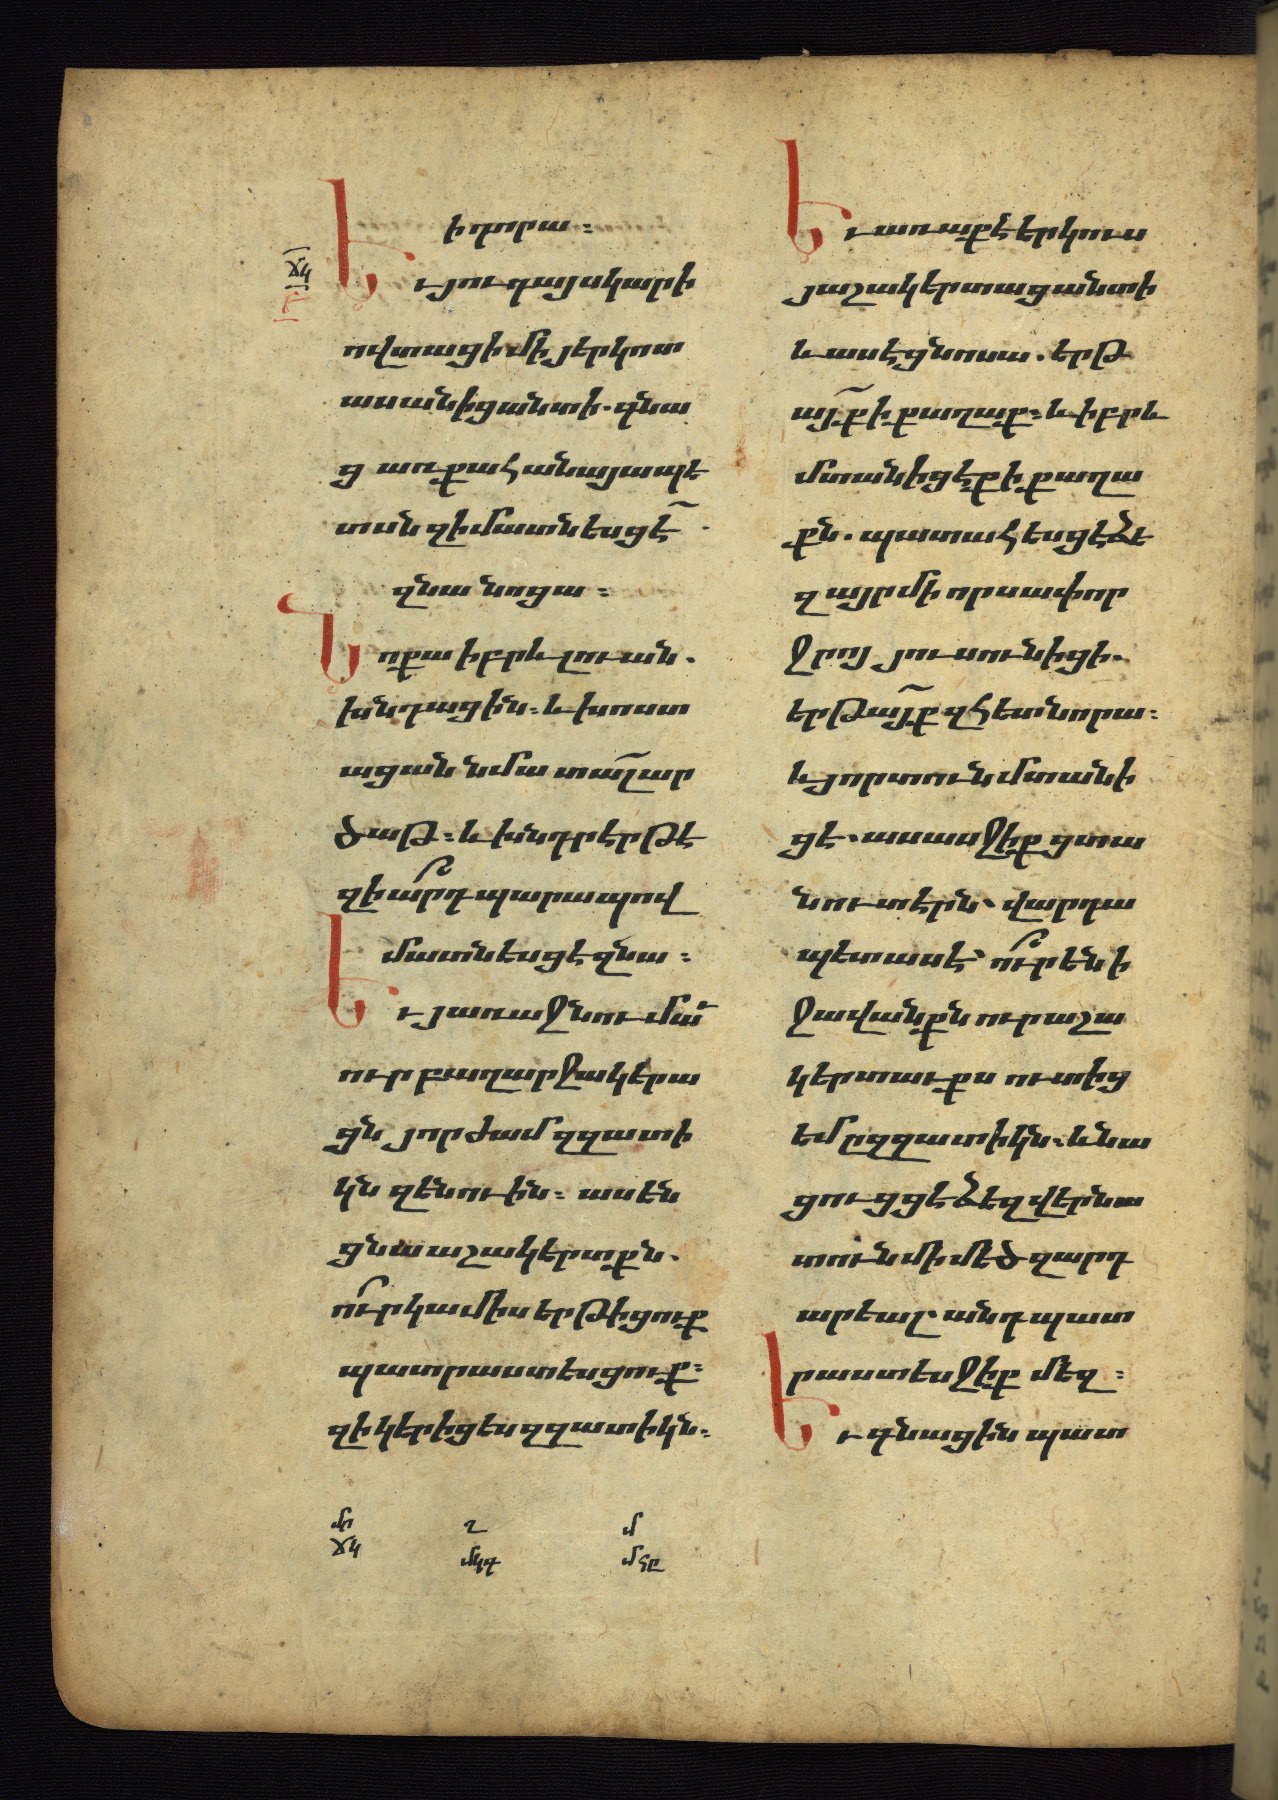 ի դորա։
ճկ
Եւ յուդայ սկարի
ովտացի մի յերկոտ
ասանիցանտի. գնա
ց առ քահանայապե
տսն զի մատնեսցէ
զնա նոցա։
Նոքա իբրև լուան.
խնդացին։ և խոստ
ացան նմա տալ ար
ծաթ։ և խնդրէր թէ
զիարդ պարապով
մատնեսցէ զնա։
Եւ յառաջնում ա՛ւ
ուր բաղարջակերա
ցն յորժամ զզատի
կն զենուին։ ասեն
ցնա աշակերտքն.
ո՞ւր կամիս երթիցուք
պատրաստեսցուք։
զի կերիցես զզատիկն։
Եւ առաքէ երկուս
յաշակերտացանտի
և ասէ ցնոսա. երթ
այ՛ք ի քաղաք։ և իբրև
մտանիցէք ի քաղա
քն. պատահեսցէ ձե
զ այր մի որ սափոր
ջրոյ յուսունիցի.
երթայ՛ք զհետ նորա։
և յոր տուն մտանի
ցէ. ասասջիք ցտա
նուտէրն. վարդա
պետ ասէ՝ ո՞ւր են ի
ջավանքն ուր աշա
կերտաւքս ուտից
եմ ըզզատիկն։ և նա
ցուցցէ ձեզ վերնա
տուն մի մեծ զարդ
արեալ. անդ պատ
րաստեսջիք մեզ։
Եւ գնացին պատ
մի ղ մ
ճկ մկդ մհը